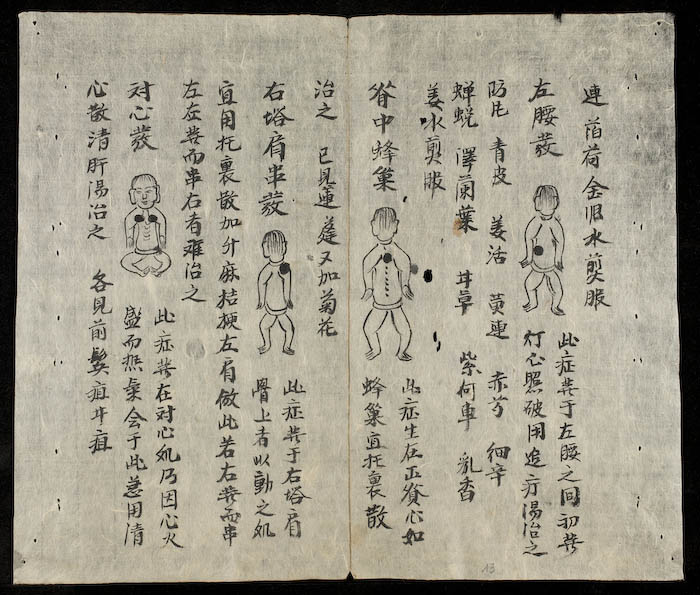 連 萡荷 金旧水煎服
左腰發
此症發于左腰之間初發
灯心照破用追疔湯治之
防風 青皮 姜活 黄連 赤芍 細辛
蝉蜕 澤蘭葉 甘草 紫何車 乳香
姜水煎服
脊中蜂巢
此症生在正脊心如
蜂巢宜托裏散
治之 已見連 又加菊花
右塔肩串發
此症發于右塔肩
骨上者以動之処
宜用托裏散加升麻桔梗左肩倣此若右發而串
左左發而串右者难治之
对心發
此症發在对心処乃因心火
盛而热氣会于此急用清
心散清肝湯治之 各見前鬓疽耳疽
13